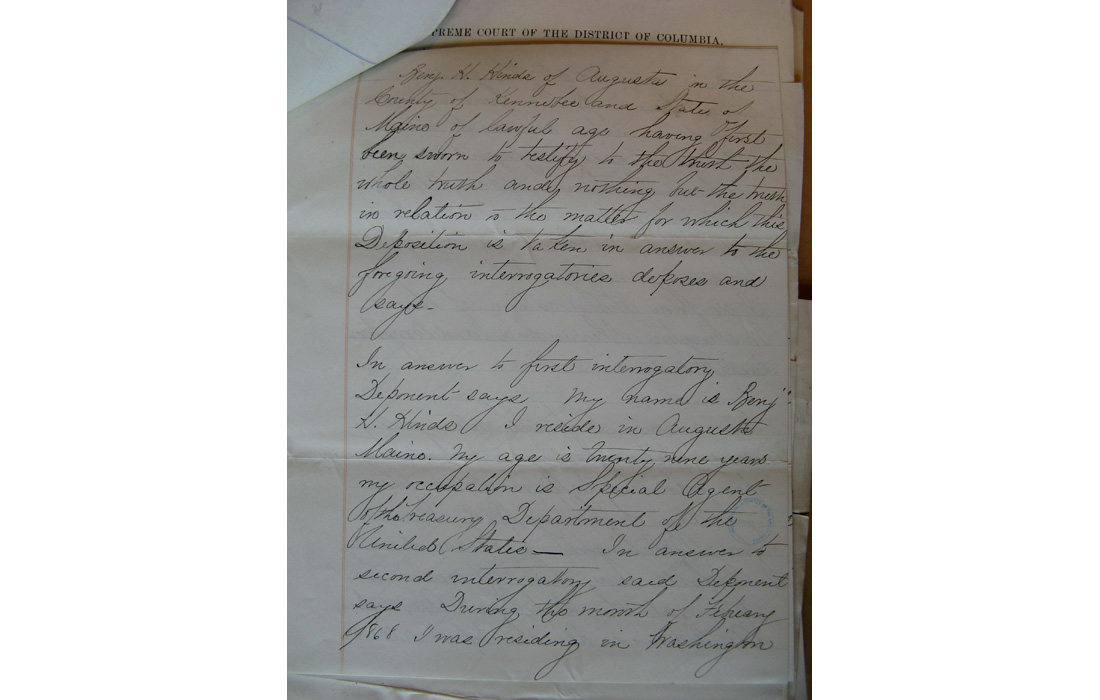 PREME COURT OF THE DISTRICT OF COLUMBIA.
Benj. H. Hinds of Augusta in the
County of Kennebec and State of
Maine of lawful age having first
been sworn to testify to the truth the
whole truth and nothing but the truth
in relation to the matter for which this
Deposition is taken in answer to the
foregoing interrogatories deposes and
says-
In answer to first interrogatory
Deponent says My name is Benj
H. Hinds I reside in Augusta
Maine. My age is twenty nine years
my occupation is Special Agent
of the Treasury Department of the
United States — In answer to
second interrogatory said Deponent
says During the month of February
1868 I was residing in Washington